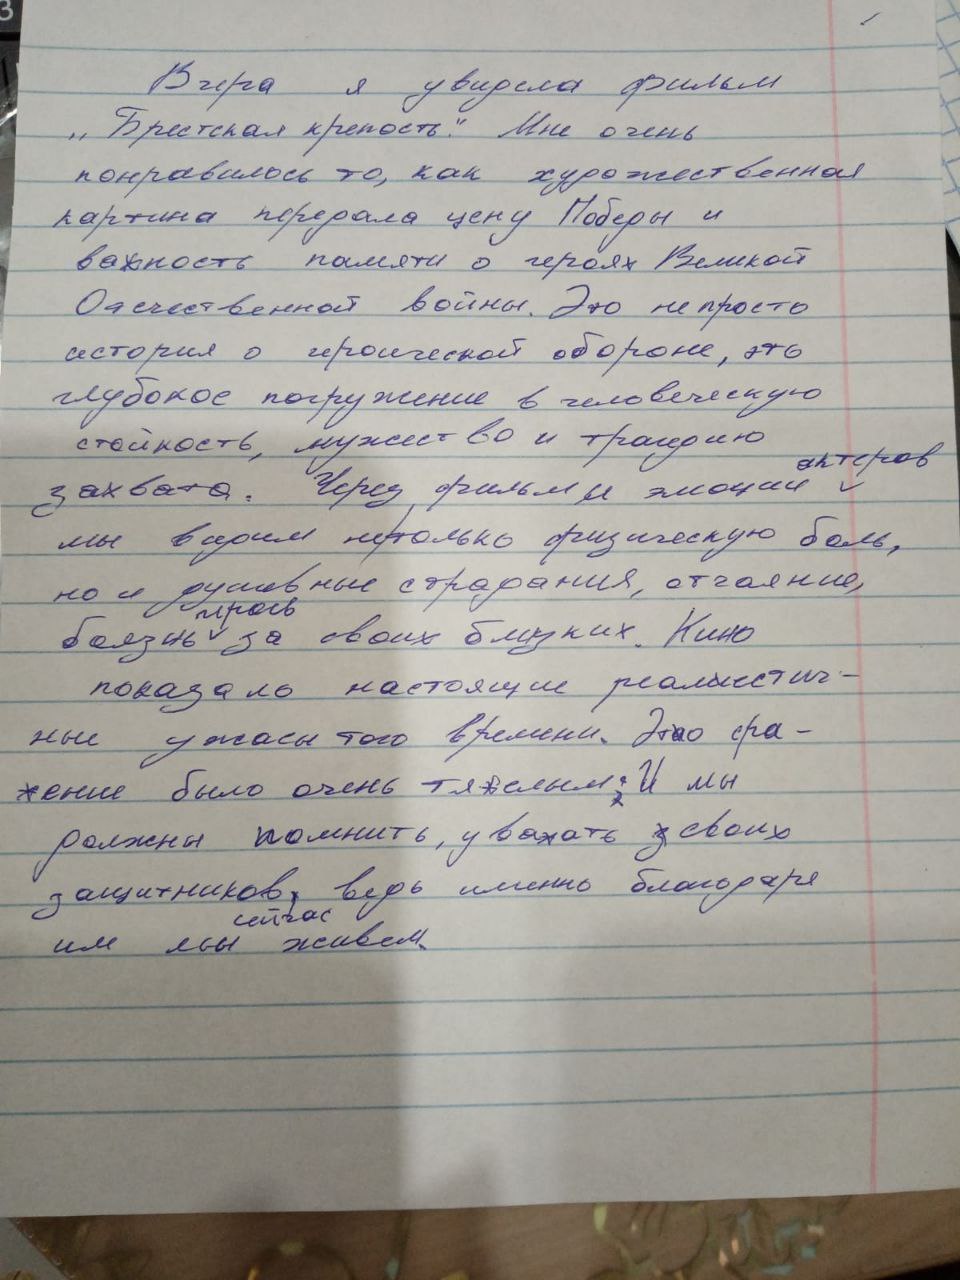 Вчера я увидела фильм
„Брестская крепость". Мне очень
понравилось то, как художественная
картина передала цену Победы и
важность памяти о героях Великой
Отечественной войны. Это не просто
история о героической обороне, это
глубокое погружение в человеческую
стойкость, мужество и трагедию
захвата. Через фильм и эмоции актеров
мы видим не только физическую боль,
но и душевные страдания, отчаяние,
боязнь за своих близких. Кино
показало настоящие реалистич-
ные ужасы того времени. Это сра-
жение было очень тяжелым. И мы
должны помнить, уважать своих
защитников, ведь именно благодаря
им мы сейчас живем.